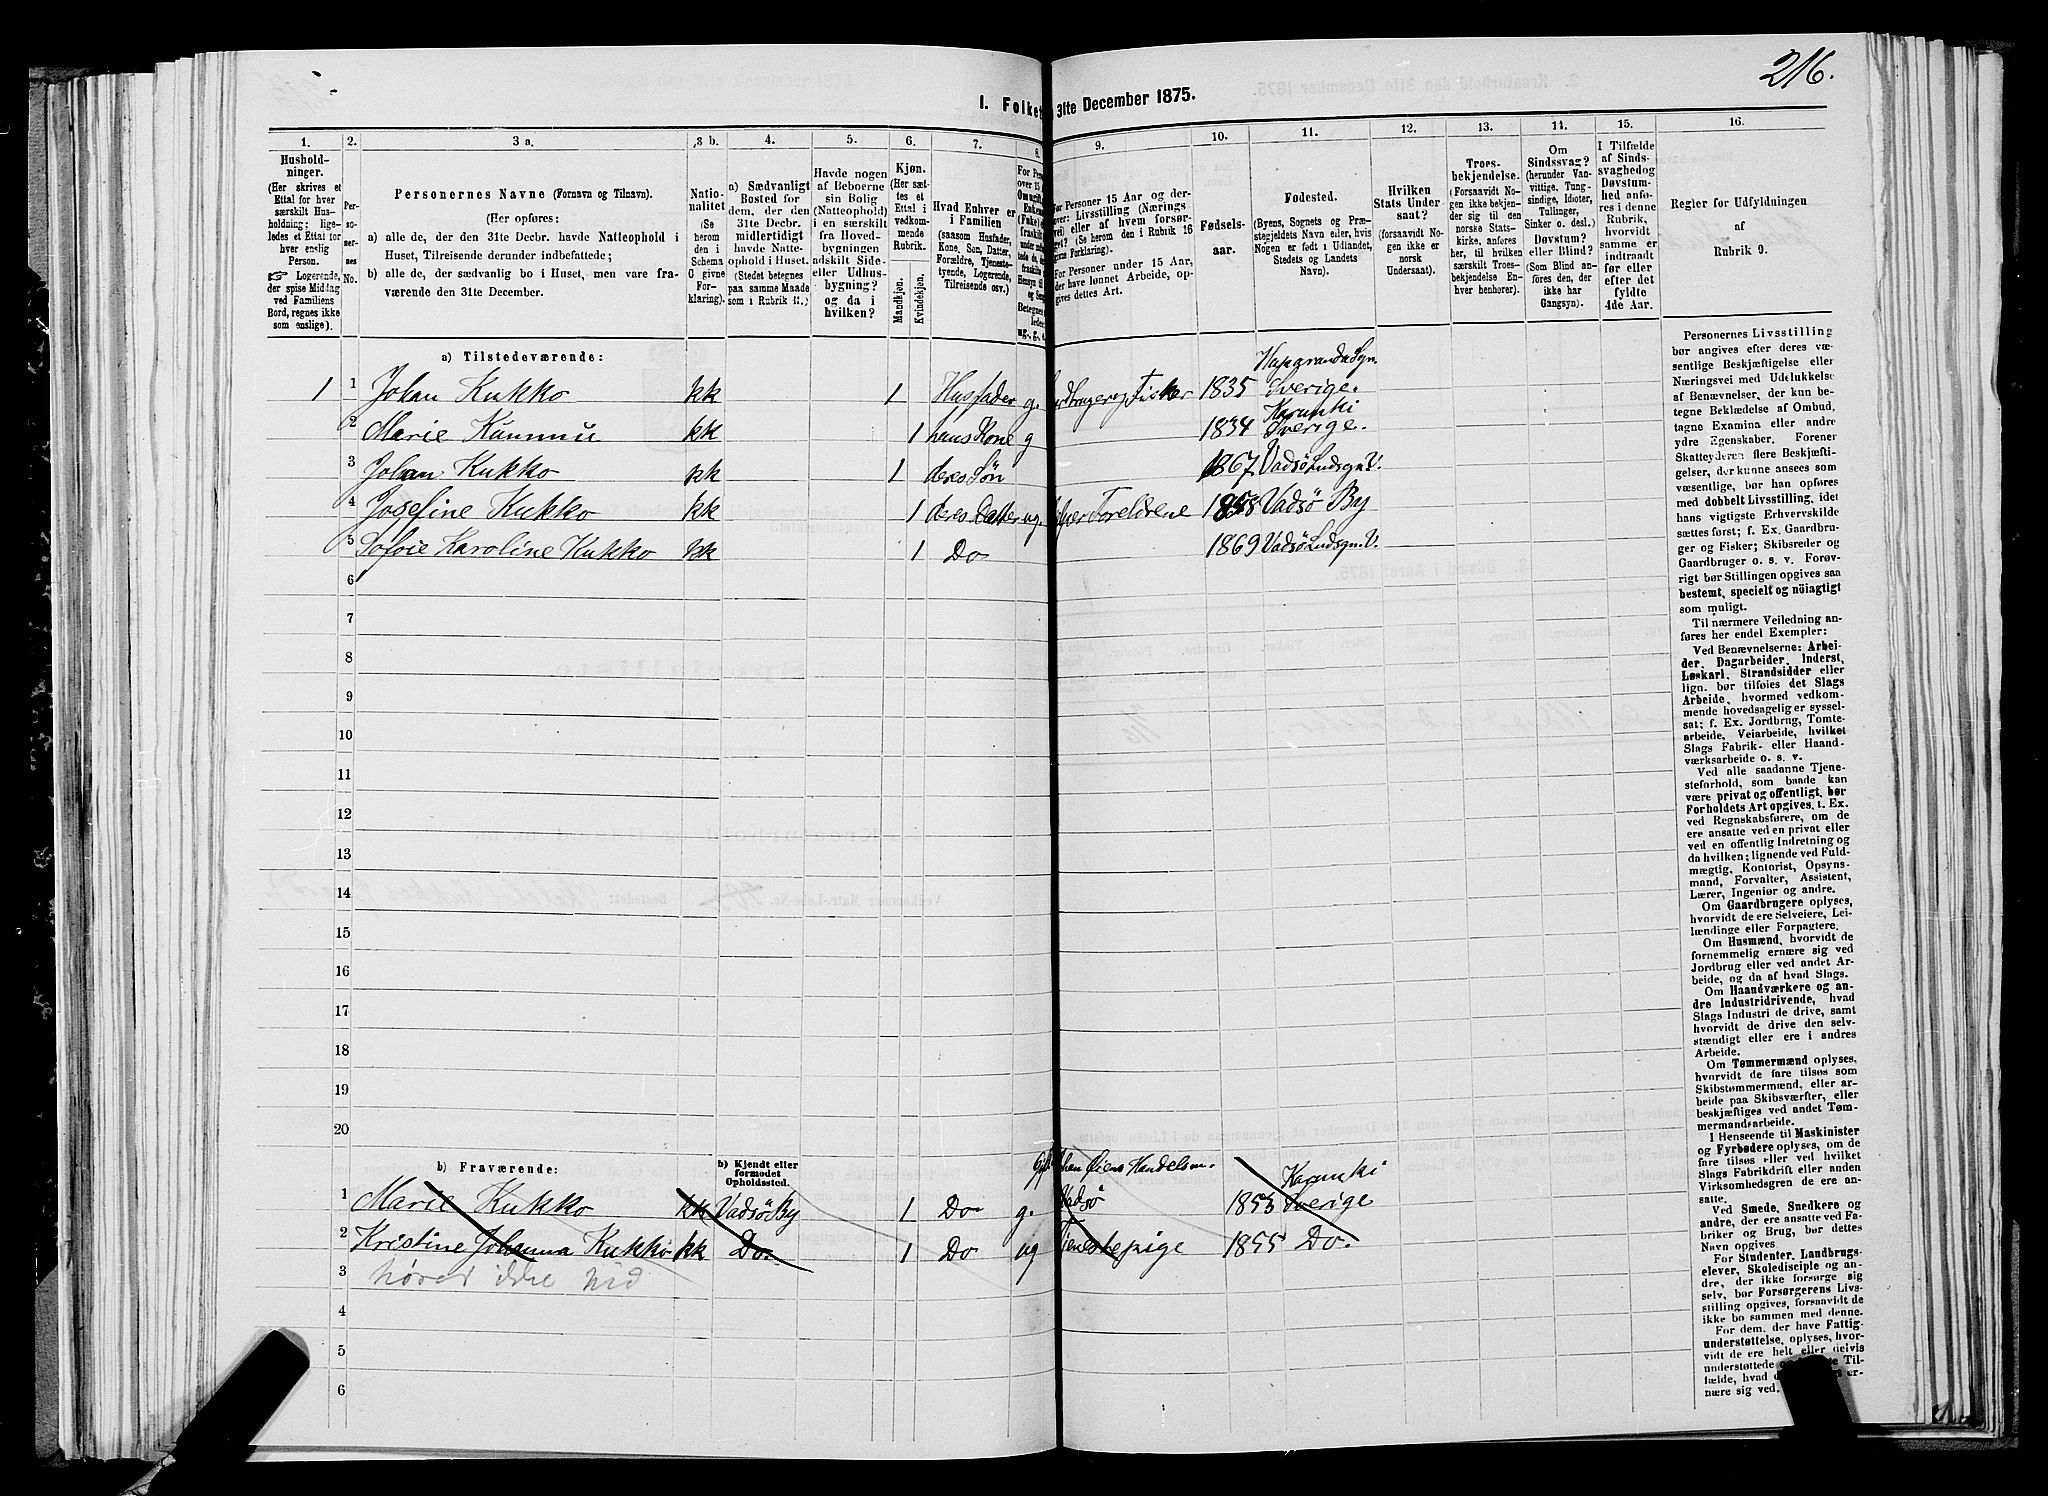 216.
I. Folket
31te December 1875.
1.
2.
3 a.
3 b.
4.
5.
6.
7.
8.
9.
10.
11.
12.
13.
14.
15.
16.
Hushold-
ninger.
(Her skrives et
Ettal for hver
særskilt Hus-
holdning; lige-
ledes et Ettal for
hver enslig
Person.
☞ Logerende,
der spise Middag
ved Familiens
Bord, regnes ikke
som enslige).
Per-
so-
ner-
nes
No.
Personernes Navne (Fornavn og Tilnavn).
(Her opføres:
a) alle de, der den 31te Decbr. havde Natteophold i
Huset, Tilreisende derunder indbefattede;
b) alle de, der sædvanlig bo i Huset, men vare fra-
værende den 31te December.
Natio-
nalitet
(Se
herom
den i
Schema
O givne
For-
klaring).
a) Sædvanligt
Bosted for
dem, der den
31te Decbr.
midlertidigt
havde Natte-
ophold i Huset.
(Stedet betegnes
paa samme Maade
som i Rubrik 11.)
Havde nogen
af Beboerne
sin Bolig
(Natteophold)
i en særskilt
fra Hoved-
bygningen
adskilt Side-
eller Udhus-
bygning?
og da i
hvilken?
Kjøn.
(Her sæt-
tes et
Ettal i
vedkom-
mende
Rubrik.
Mandkjøn.
Kvindekjøn.
Hvad Enhver er
i Familien
(saasom Husfader,
Kone, Søn, Datter,
Forældre, Tjeneste-
tyende, Logerende,
Tilreisende osv.)
For Personer 15 Aar og der-
over: Livsstilling (Nærings-
vei) eller af hvem forsør-
get? (Se herom den i Rubrik 16
givne Forklaring.)
For Personer under 15 Aar,
der have lønnet Arbeide, op-
gives dettes Art.
Fødsels-
aar.
Fødested.
(Byens, Sognets og Præ-
stegjeldets Navn eller, hvis
Nogen er født i Udlandet,
Stedets og Landets
Navn).
Hvilken
Stats Under-
saat?
(forsaavidt No-
gen ikke er
norsk
Undersaat).
Troes-
bekjendelse.
(Forsaavidt No-
gen ikke bekjen-
der sig til den
norske Stats-
kirke, anføres
her, til hvilken
særskilt Troes-
bekjendelse En-
hver henhører).
Om
Sindssvag?
(herunder Van-
vittige, Tung-
sindige, Idioter,
Tullinger,
Sinker o. desl.)
Døvstum?
eller Blind?
(Som Blind an-
føres den, der
ikke har
Gangsyn).
I Tilfælde
af Sinds-
svaghed og
Døvstum-
hed anfø-
res i denne
Rubrik,
hvorvidt
samme er
indtraadt
før eller
efter det
fyldte
4de Aar.
Regler for Udfyldningen
af
Rubrik 9.
a) Tilstedeværende:
Hapranda Sgn.
1 1 Johan Kukko kk 1 Husfader g. Jordbruger og Fisker 1835 Sverige.
Karunki
2 Marie Kummu kk 1 hans Kone g 1834 Sverige.
3 Johan Kukko kk 1 deres Søn 1867 Vadsø Ladsgn. V.
4 Josefine Kukko kk 1 deres Datter ug. hjelper Foreldrene 1858 Vadsø By
5 Sofie Karoline Kukko kk 1 Do 1869 Vadsø Ladsgn. V.
6
7
8
9
10
11
12
13
14
15
16
17
18
19
20
b) Fraværende:
b) Kjendt eller
formodet
Opholdssted.
Gift Johan Øiens Handelsm. Karunki
1 Marie Kukko kk Vadsø By 1 Do g. Vadsø 1853 Sverige
2 Kristine Johanna Kukko kk Do. 1 Do ug Tjenestepige 1855 Do.
3 hører ikke hid
4
5
6
Personernes Livsstilling
bør angives efter deres væ-
sentlige Beskjæftigelse eller
Næringsvei med Udelukkelse
af Benævnelser, der kun be-
tegne Beklædelse af Ombud,
tagne Examina eller andre
ydre Egenskaber. Forener
Skatteyderen flere Beskjæfti-
gelser, der kunne ansees som
væsentlige, bør han opføres
med dobbelt Livsstilling, idet
hans vigtigste Erhvervskilde
sættes først; f. Ex. Gaardbru-
ger og Fisker; Skibsreder og
Gaardbruger o. s. v. Forøv-
rigt bør Stillingen opgives saa
bestemt, specielt og nöiagtigt
som muligt.
Til nærmere Veiledning an-
føres her endel Exempler:
Ved Benævnelserne: Arbei-
der, Dagarbeider, Inderst,
Løskarl, Strandsidder eller
lign. bør tilføies det Slags
Arbeide, hvormed vedkom-
mende hovedsagelig er syssel-
sat; f. Ex. Jordbrug, Tomte-
arbeide, Veiarbeide, hvilket
Slags Fabrik- eller Haand-
værksarbeide o. s. v.
Ved alle saadanne Tjene-
steforhold, som baade kan
være privat og offentligt, bør
Forholdets Art opgives, t. Ex.
ved Regnskabsførere, om de
ere ansatte ved en privat eller
ved en offentlig Indretning og
da hvilken; lignende ved Fuld-
mægtig, Kontorist, Opsyns-
mand, Forvalter, Assistent,
Lærer, Ingeniør og andre.
Om Gaardbrugere oplyses,
hvorvidt de ere Selveiere, Lei-
lændinge eller Forpagtere.
Om Husmænd, hvorvidt de
fornemmelig ernære sig ved
Jordbrug eller ved andet Ar-
beide, og da af hvad Slags.
Om Haandværkere og an-
dre Industridrivende, hvad
Slags Industri de drive, samt
hvorvidt de drive den selv-
stændigt eller ere i andres
Arbeide.
Om Tømmermænd oplyses,
hvorvidt de fare tilsøs som
Skibstømmermænd, eller ar-
beide paa Skibsværfter, eller
beskjæftiges ved andet Tøm-
mermandsarbeide.
I Henseende til Maskinister
og Fyrbødere oplyses, om de
fare tilsøs eller ved hvilken
Slags Fabrikdrift eller anden
Virksomhedsgren de ere an-
satte.
Ved Smede, Snedkere og
andre, der ere ansatte ved Fa-
briker og Brug, bør dettes
Navn opgives
For Studenter, Landbrugs-
elever, Skoledisciple og an-
dre, der ikke forsørge sig
selv, bør Forsørgerens Livs-
stilling opgives, forsaavidt de
ikke bo sammen med denne.
For dem, der have Fattig-
understøttelse, oplyses, hvor-
vidt de ere helt eller delvis
understøttede